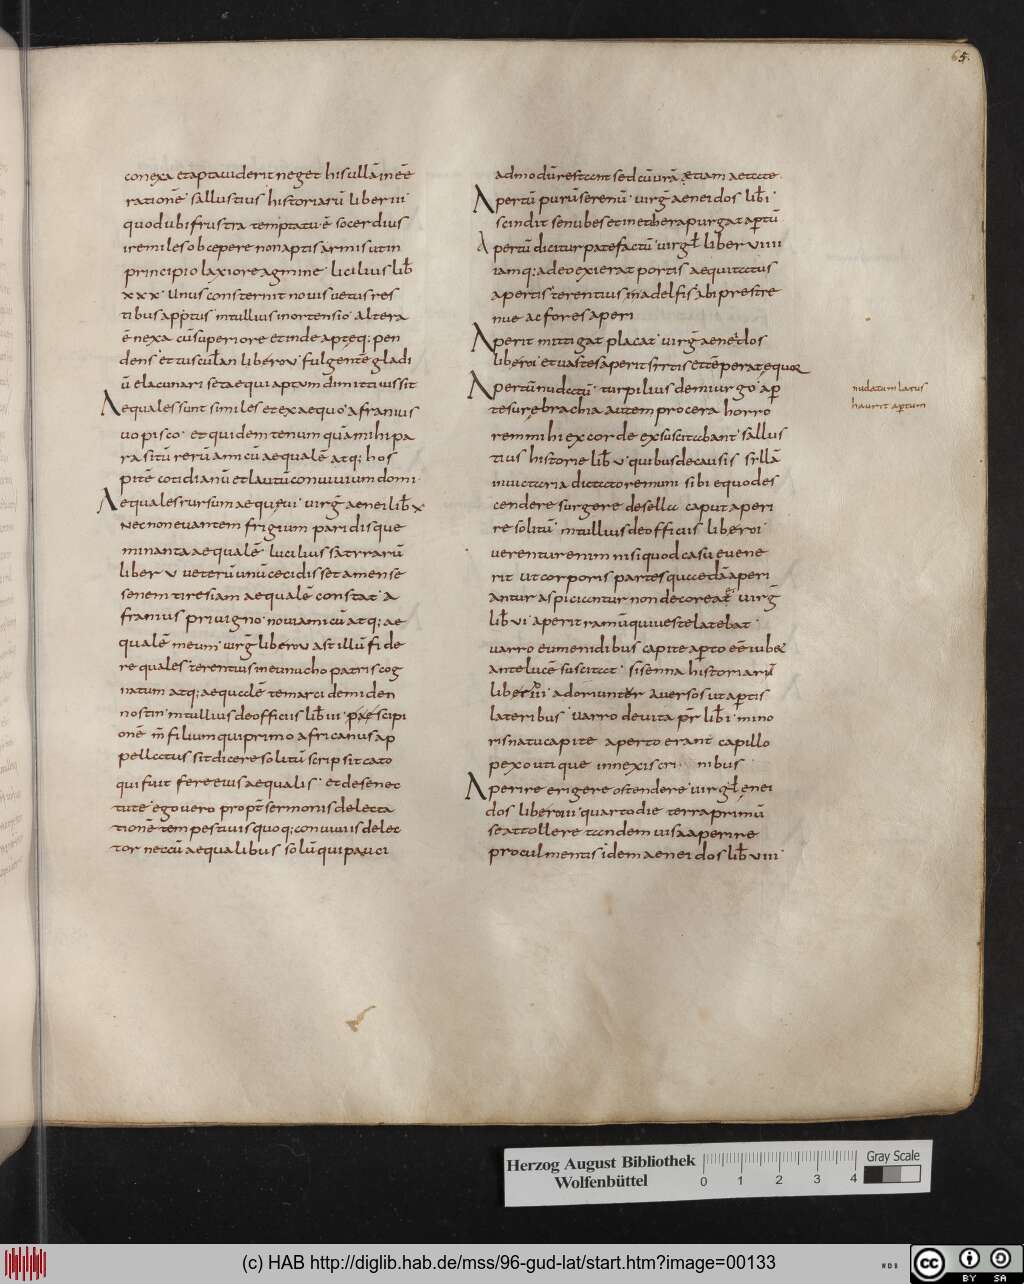 65.
conexa et apta uiderit neget his ullā inēē
rationē sallustius historiarū liber iii
quod ubi frustra temptatū ē socer dius
iremiles obcepere non aptis armis ut in
principio laxiore agmine licilius lib̄
xxx unus consternit nouis uetus res
tibus ap̣ptus m tullius in ortensio altera
ē nexa cū superiore et inde apteq; pen
dens et tusculan libero v fulgentē gladi
ū e lacunari seta equi aptam dimitti iussit
Aequales sunt similes et ex aequo afranius
uopisco et quidem tenum quā mihi pa
rasitū rerū amicū aequalē atq; hos
pitē cotidianū et lautū conuiuium domi
Aequales rursum aequęui uirḡ aenei lib̄ x
nec non euantem frigium paridisque
minanta aequalē lucilius sātyrarū
liber v ueterū unū cecidisset amense
senem tiresiam aequalē constat a
franius priuigno noui amicū atq; ae
qualē meum uirḡl libero v ast illū fide
re quales terentius in eunucho patris cog
natum atq; aequalē temarci demiden
nostin m tullius de officiis lib̄ iii pạẹ scipi
onē m̄ filium qui primo africanus ap
pellatus sit dicere solitū scripsit cato
qui fuit fere eius aequalis et de senec
tute ego uero propt̄ sermonis delecta
tionē tempestiuis quoq; conuiuiis delec
tor nec cū aequalibus solū qui pauci
admodū restant sed cū urā ętiam aetate
Apertū purū serenū uirḡ aeneidos lib̄ i
scindit se nubes et in ethera purgat aptū
Apertū dicitur patefactū uirgl̄ liber viiii
iamq; adeo exierat portis aequitatus
apertis terentius in adelfis abi prestre
nue ac fores aperi
Aperit mitigat placat uirḡ aeneidos
libero i et uastes aperit syrtis et tēperat ęquor
Apertū nudatū turpilius demiurgo ap
te surę brachia autem procera horro
rem mihi ex corde exsuscitabant sallus
tius historie lib̄ v quibus de causis syllā
in uictoria dictatorem uni sibi equo des
cendere surgere de sella caput aperi
re solitū m tullius de officiis libero i
uerentur enim nisi quod casu euene
rit ut corporis partes quędā aperi
antur aspiciantur non decore at uirḡ
lib̄ vi aperit ramū qui ueste latebat
uarro eumenidibus capite apto eē iubet
ante lucē suscitat sisenna historiarū
liber iii adoriuntur auersos ut aptis
lateribus uarro de uita pr̄ lib̄ i mino
ris natu capite aperto erant capillo
pexo utique innexis cri nibus
Aperire erigere ostendere uirgl̄ ęnei
dos libero iii quarto die terra primū
se attollere tandem uisa aperire
procul mentis idem aeneidos lib̄ viii
nudatum latus
haurit aptum
Herzog August Bibliothek
Wolfenbüttel
0 1 2 3 4
Gray Scale
(c) HAB http://diglib.hab.de/mss/96-gud-lat/start.htm?image=00133
WDB
cc BY SA